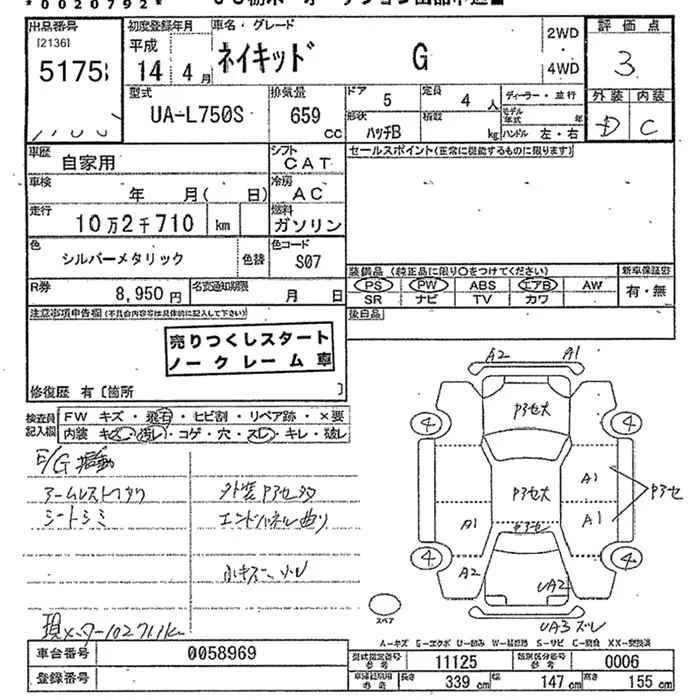 *0020792*
出品番号 初度登録年月 車名・グレード 2WD 評価点
[2136] 平成 ネイキッド G 4WD 3
5175 14 4月
型式 排気量 ドア 5 定員 4人 ディーラー・並行 外装 内装
UA-L750S 659 cc 形状 ハッチB 積載 kg モデル年式 年 D C
ハンドル 左・右
車歴 自家用 シフト CAT セールスポイント(正常に機能するものに限ります)
車検 年 月( 日) 冷房 AC
走行 10万2千710 km 燃料 ガソリン
色 シルバーメタリック 色替 色コード S07
装備品 (純正品に限り○をつけてください) 新車保証書
PS PW ABS エアB AW 有・無
SR ナビ TV カワ
R券 8,950円 名変通知期限 月 日
後日品
注意事項申告欄(不具合内容等は具体的に記入して下さい)
売りつくしスタート
ノークレーム車
修復歴 有〔箇所 〕
検査員記入欄 FW キズ・飛石・ヒビ割・リペア跡・×要
内装 キズ・汚れ・コゲ・穴・スレ・キレ・破レ
E/G
シートシミ
外装アセ
エンドパネル曲り
小キズ
A2 A1
アセ大
4 4
アセ大 A1 アセ
A1 A1
アセ
4 4
A2 UA2
スペア
UA3 ズレ
A-キズ G-エクボ U-凹み S-サビ C-腐食 XX-交換済
車台番号 0058969
型式指定番号 参考 11125 類別区分番号 参考 0006
登録番号
長さ 339 cm 幅 147 cm 高さ 155 cm